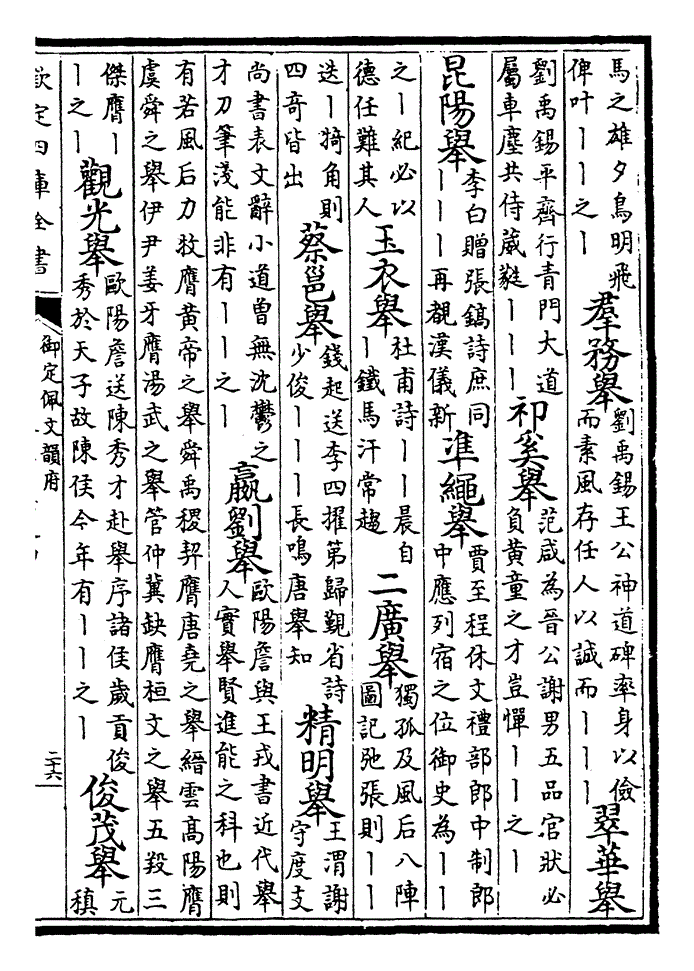 馬之雄夕鳥明飛
俾叶丨丨之丨
羣務舉
劉禹錫王公神道碑率身以儉
而素風存任人以誠而丨丨丨
翠華舉
劉禹錫平齊行青門大道
屬車塵共侍葳蕤丨丨丨
祁奚舉
范咸為晉公謝男五品官狀必
負黄童之才豈憚丨丨之丨
昆陽舉
李白贈張鎬詩庶同
丨丨丨再覩漢儀新
凖繩舉
賈至程休文禮部郎中制郎
中應列宿之位御史為丨丨
之丨紀必以
德任難其人
玉衣舉
杜甫詩丨丨晨自
丨鐵馬汗常趨
二廣舉
獨孤及風后八陣
圖記弛張則丨丨
迭丨犄角則
四奇皆出
蔡邕舉
錢起送李四擢第歸覲省詩
少俊丨丨丨長鳴唐舉知
精明舉
王渭謝
守度支
尚書表文辭小道曽無沈鬱之
才刀筆淺能非有丨丨之丨
嬴劉舉
歐陽詹與王戎書近代舉
人實舉賢進能之科也則
有若風后力牧膺黄帝之舉舜禹稷契膺唐堯之舉縉雲髙陽膺
虞舜之舉伊尹姜牙膺湯武之舉管仲冀缺膺桓文之舉五羖三
傑膺丨
丨之丨
觀光舉
歐陽詹送陳秀才赴舉序諸侯歲貢俊
秀於天子故陳侯今年有丨丨之丨
俊茂舉
元
稹
欽定四庫全書
御定佩文韻府
二十六